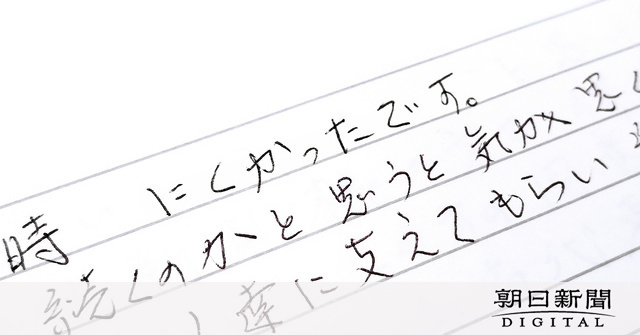 時 にくかったです。
続くのかと思うと気が思く
達に支えてもらい
朝日新聞
DIGITAL